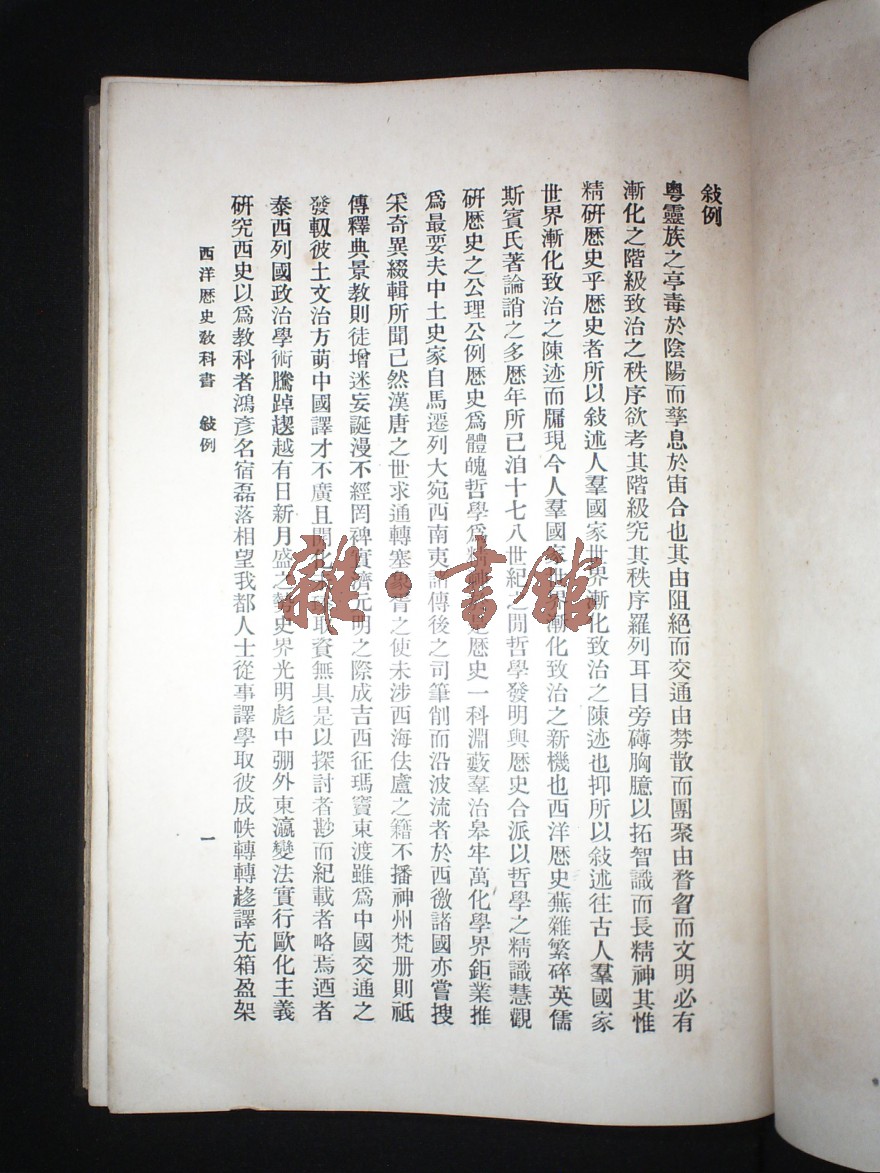 敍例
粤靈族之亭毒於陰陽而孳息於宙合也其由阻絕而交通由棼散而團聚由瞀霫而文明必有
漸化之階級致治之秩序欲考其階級究其秩序羅列耳目旁礡胸臆以拓智識而長精神其惟
精研歷史乎歷史者所以敍述人羣國家世界漸化致治之陳迹也抑所以敍述往古人羣國家
世界漸化致治之陳迹而牖現今人羣國家世界漸化致治之新機也西洋歷史蕪雜繁碎英儒
斯賓氏著論誚之多歷年所已洎十七八世紀之間哲學發明與歷史合派以哲學之精識慧觀
研歷史之公理公例歷史爲體魄哲學爲精神是歷史一科淵藪羣治皋牢萬化學界鉅業推
爲最要夫中土史家自馬遷列大宛西南夷諸傳後之司筆削而沿波流者於西徼諸國亦嘗搜
采奇異綴輯所聞已然漢唐之世求通轉塞象胥之使未涉西海佉盧之籍不播神州梵册則祗
傳釋典景教則徒增迷妄誕漫不經罔裨實濟元明之際成吉西征瑪竇東渡雖爲中國交通之
發軔彼土文治方萌中國譯才不廣且開化取資無具是以探討者尠而紀載者略焉迺者
泰西列國政治學術騰踔趠越有日新月盛之勢史界光明彪中弸外東瀛變法實行歐化主義
研究西史以爲教科者鴻彥名宿磊落相望我都人士從事譯學取彼成帙轉轉迻譯充箱盈架
西洋歷史教科書 敍例
一
雜·書館